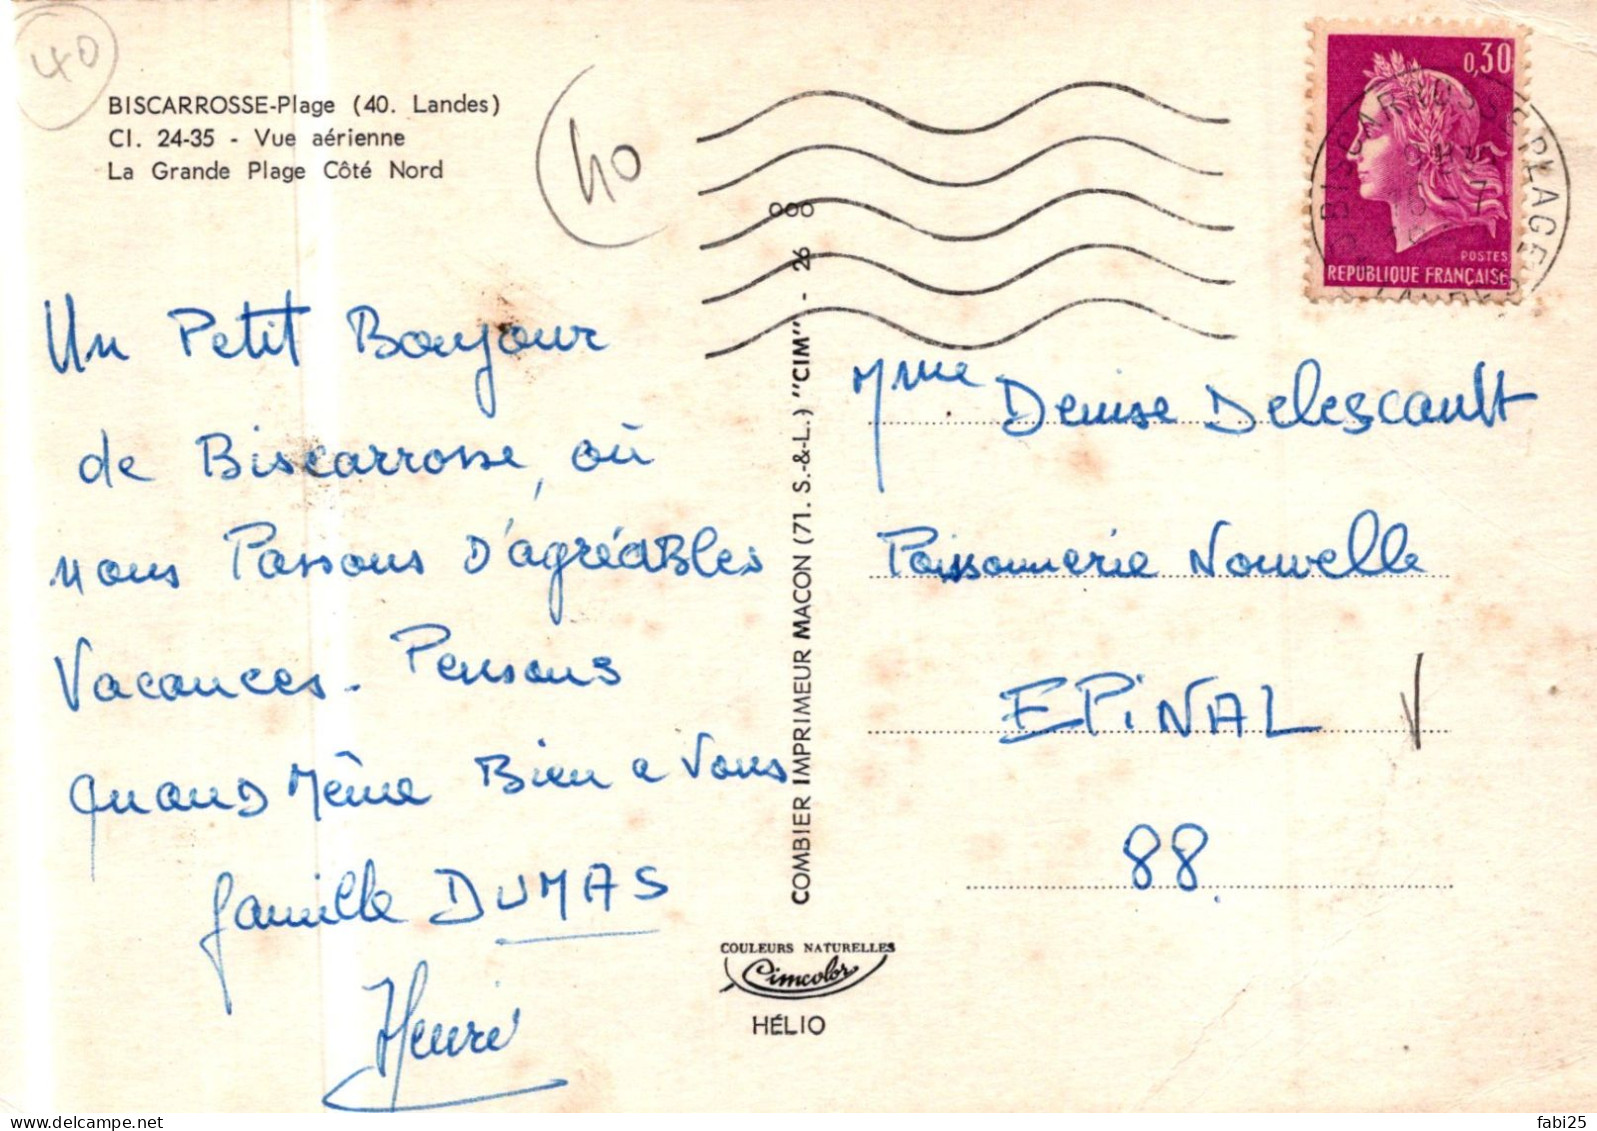 40
BISCARROSSE-Plage (40. Landes)
Cl. 24-35 - Vue aérienne
La Grande Plage Côté Nord
40
Un Petit Bonjour
de Biscarrosse, où
nous Passons D'agréables
Vacances. Pensons
quand Même Bien a Vous
famille DUMAS
Henri
COMBIER IMPRIMEUR MACON (71. S.-&-L.) "CIM" - 26 000
COULEURS NATURELLES
Cimcolor
HÉLIO
0,30
POSTES
REPUBLIQUE FRANÇAISE
BISCARROSSE PLAGE
Mme Denise Delescault
Poissonnerie Nouvelle
EPiNAL
88.
fabi25